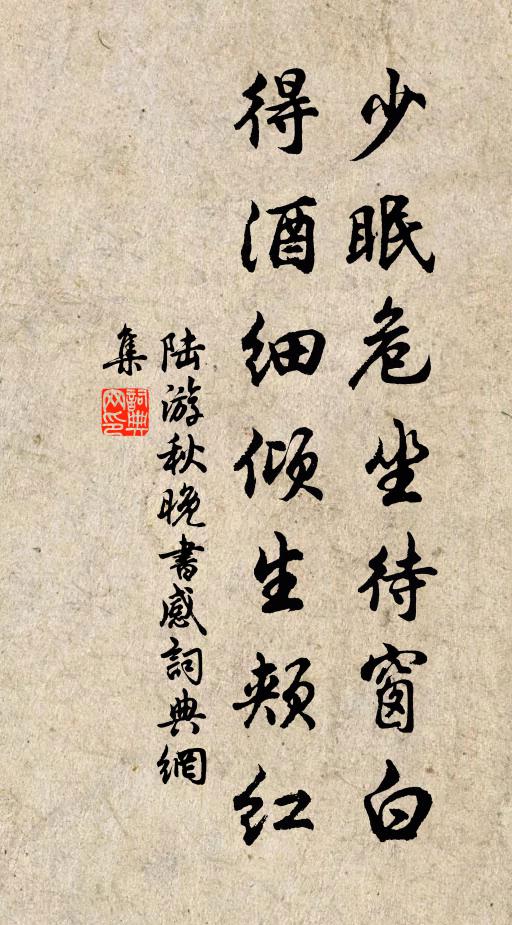 少眠危坐待窗白
得酒细倾生颊红
陆游秋晚書感詞典網
集
詞典网印